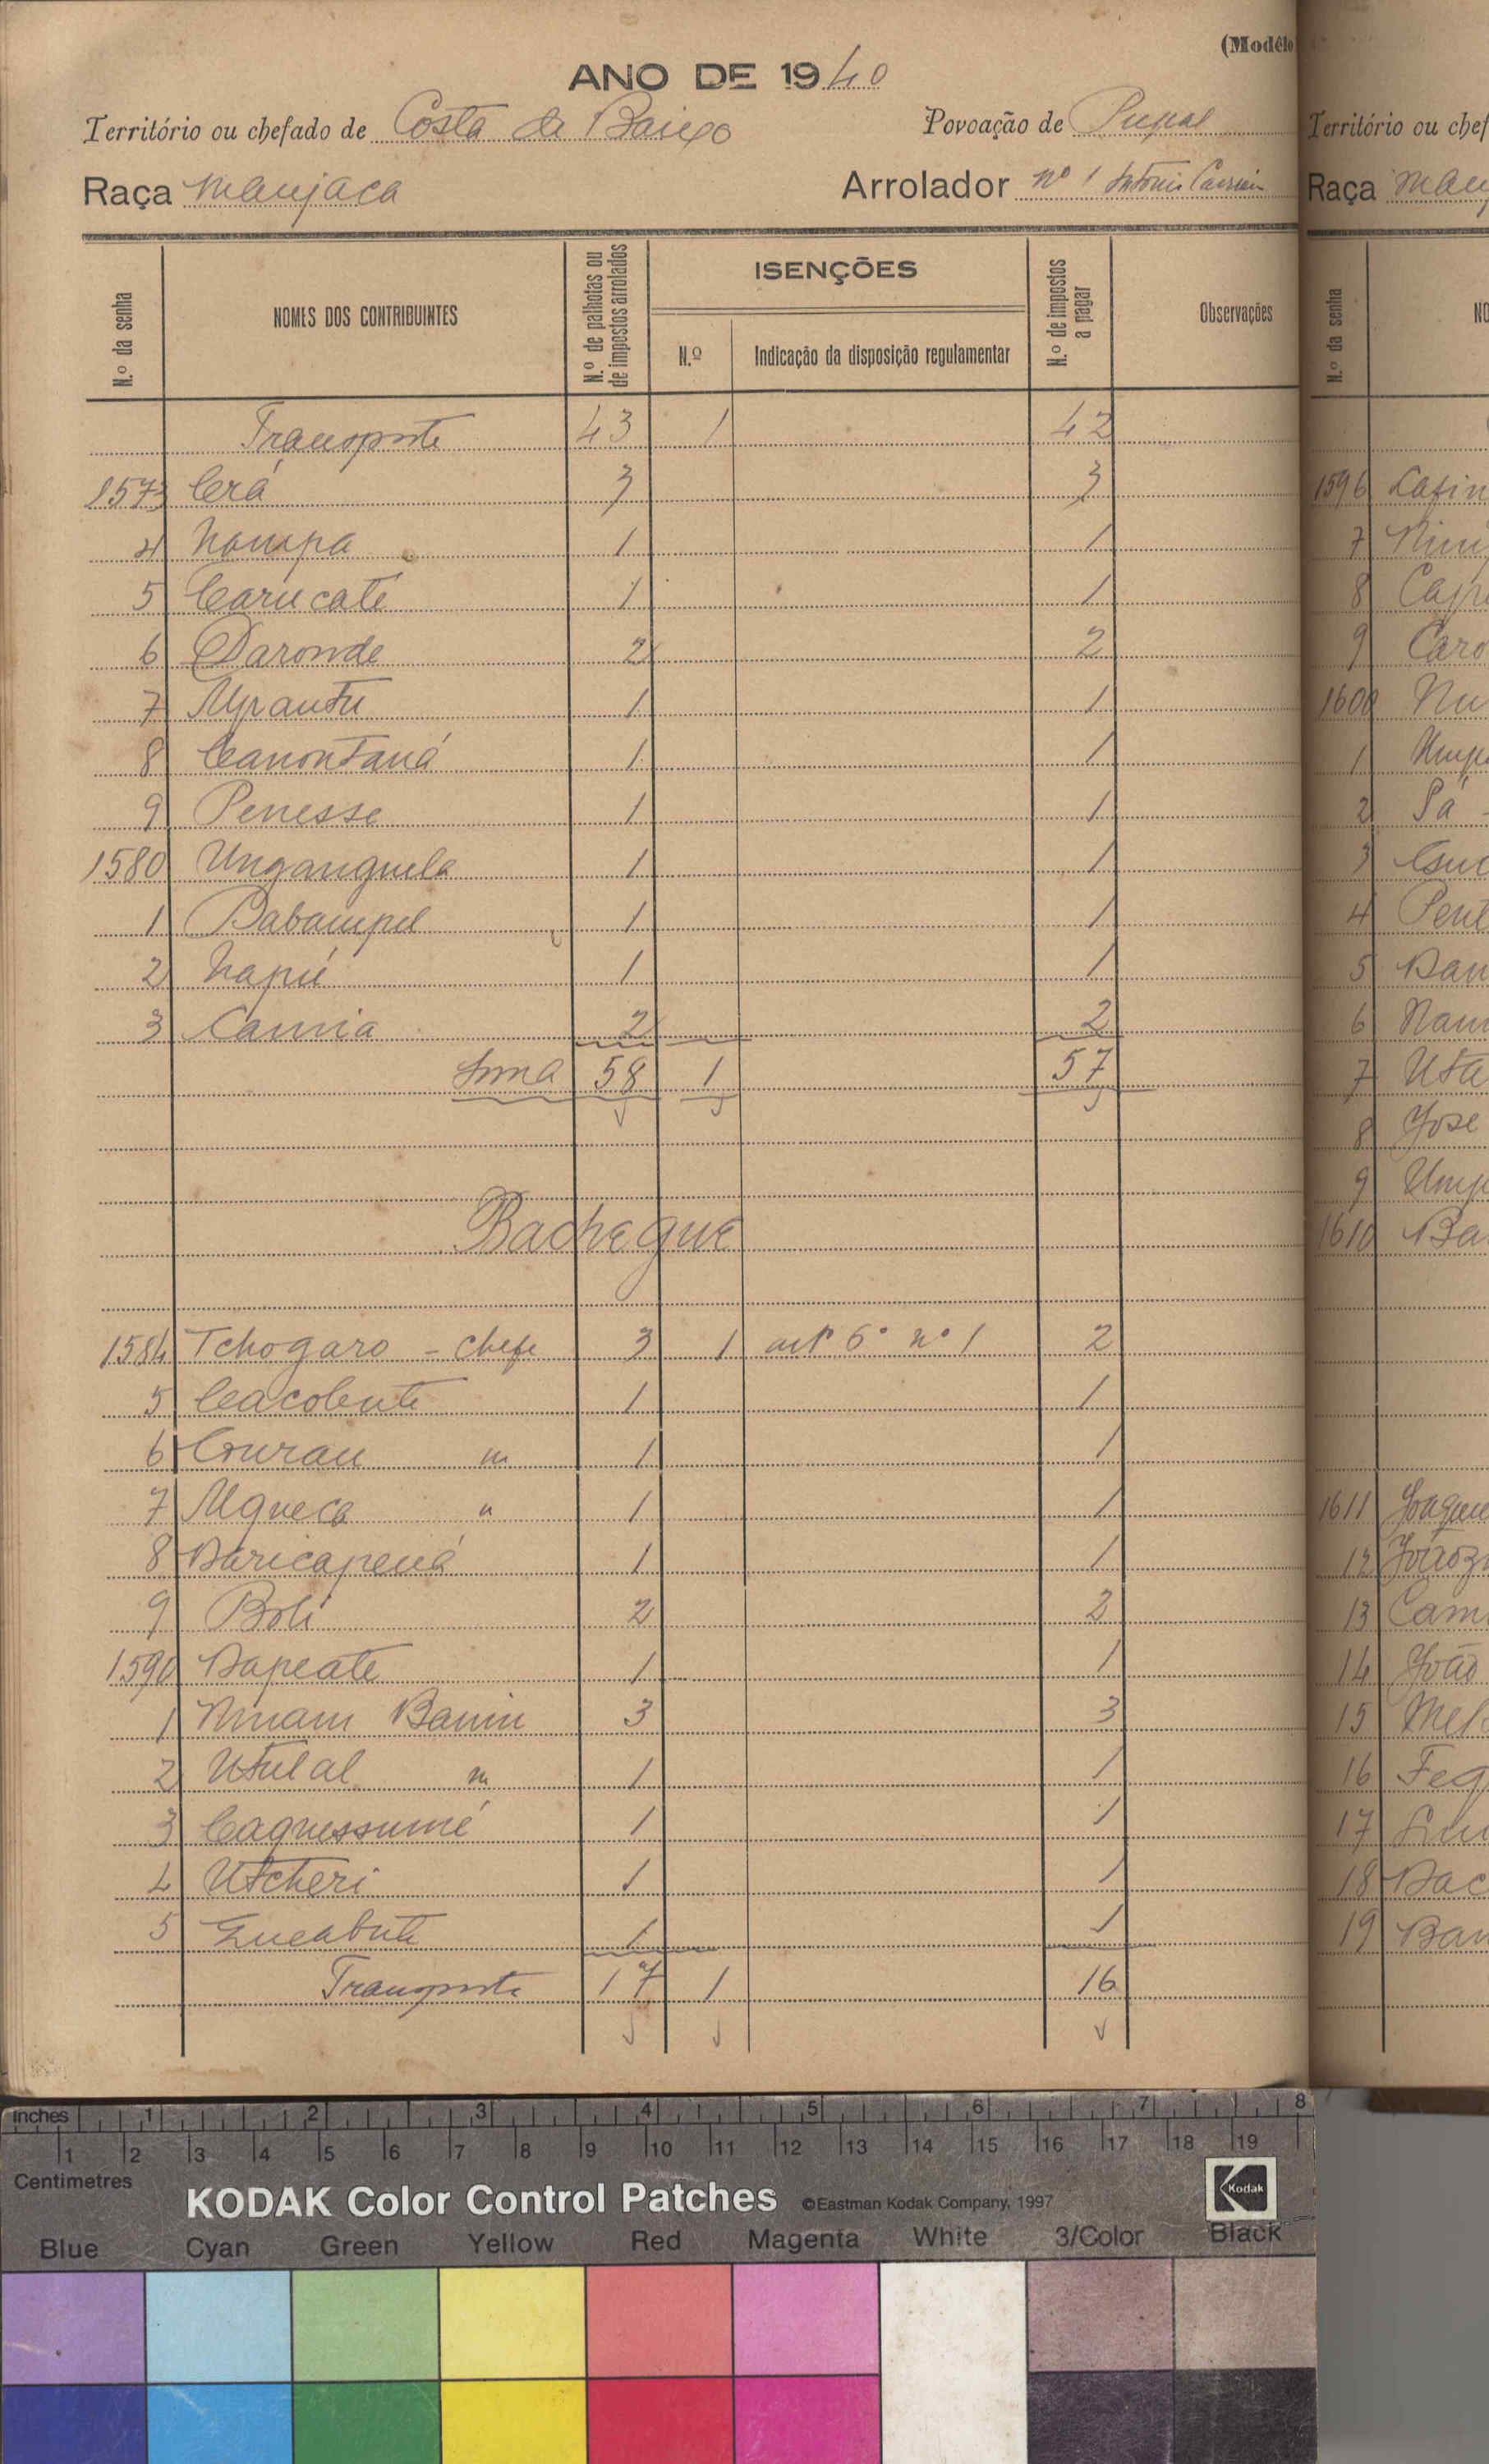 (Modêlo
ANO DE 1940
Território ou chefado de Costa de Baixo Povoação de Pupal
Raça Manjaca Arrolador nº 1 António
N.º da senha NOMES DOS CONTRIBUINTES N.º de palhotas ou de impostos arrolados ISENÇÕES N.º Indicação da disposição regulamentar N.º de impostos a pagar Observações
Transporte 43 1 42
1573 Cerá 3 3
4 Nampa 1 1
5 Carucate 1 1
6 Daronde 2 2
7 Upantu 1 1
8 Canontaná 1 1
9 Penesse 1 1
1580 Unganguela 1 1
1 Babampel 1 1
2 Napú 1 1
3 Camia 2 2
Soma 58 1 57
Bacheque
1584 Tchogaro - chefe 3 1 artº 6º nº 1 2
5 Cacobente 1 1
6 m 1 1
7 Uqueca " 1 1
8 Daricapená 1 1
9 Boli 2 2
1590 Dapeate 1 1
1 3 3
2 Utulal m 1 1
3 Caquessumé 1 1
4 Utcheri 1 1
5 1 1
Transporte 17 1 16
Território ou chef
Raça
N.º da senha NO
1596
7
8
9 Caro
1600 Nu
1
2 Pá
3
4
5
6
7
8 José
9
1610 Ba
1611
12
13 Cam
14 João
15
16
17
18
19
inches 1 2 3 4 5 6 7 8
1 2 3 4 5 6 7 8 9 10 11 12 13 14 15 16 17 18 19
Centimetres
KODAK Color Control Patches ©Eastman Kodak Company, 1997 Kodak
Blue Cyan Green Yellow Red Magenta White 3/Color Black